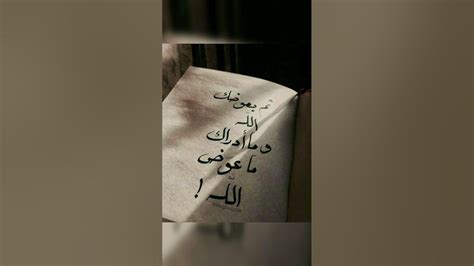 ثم يعوضك
الله
وما أدراك
ما عوض
الله !